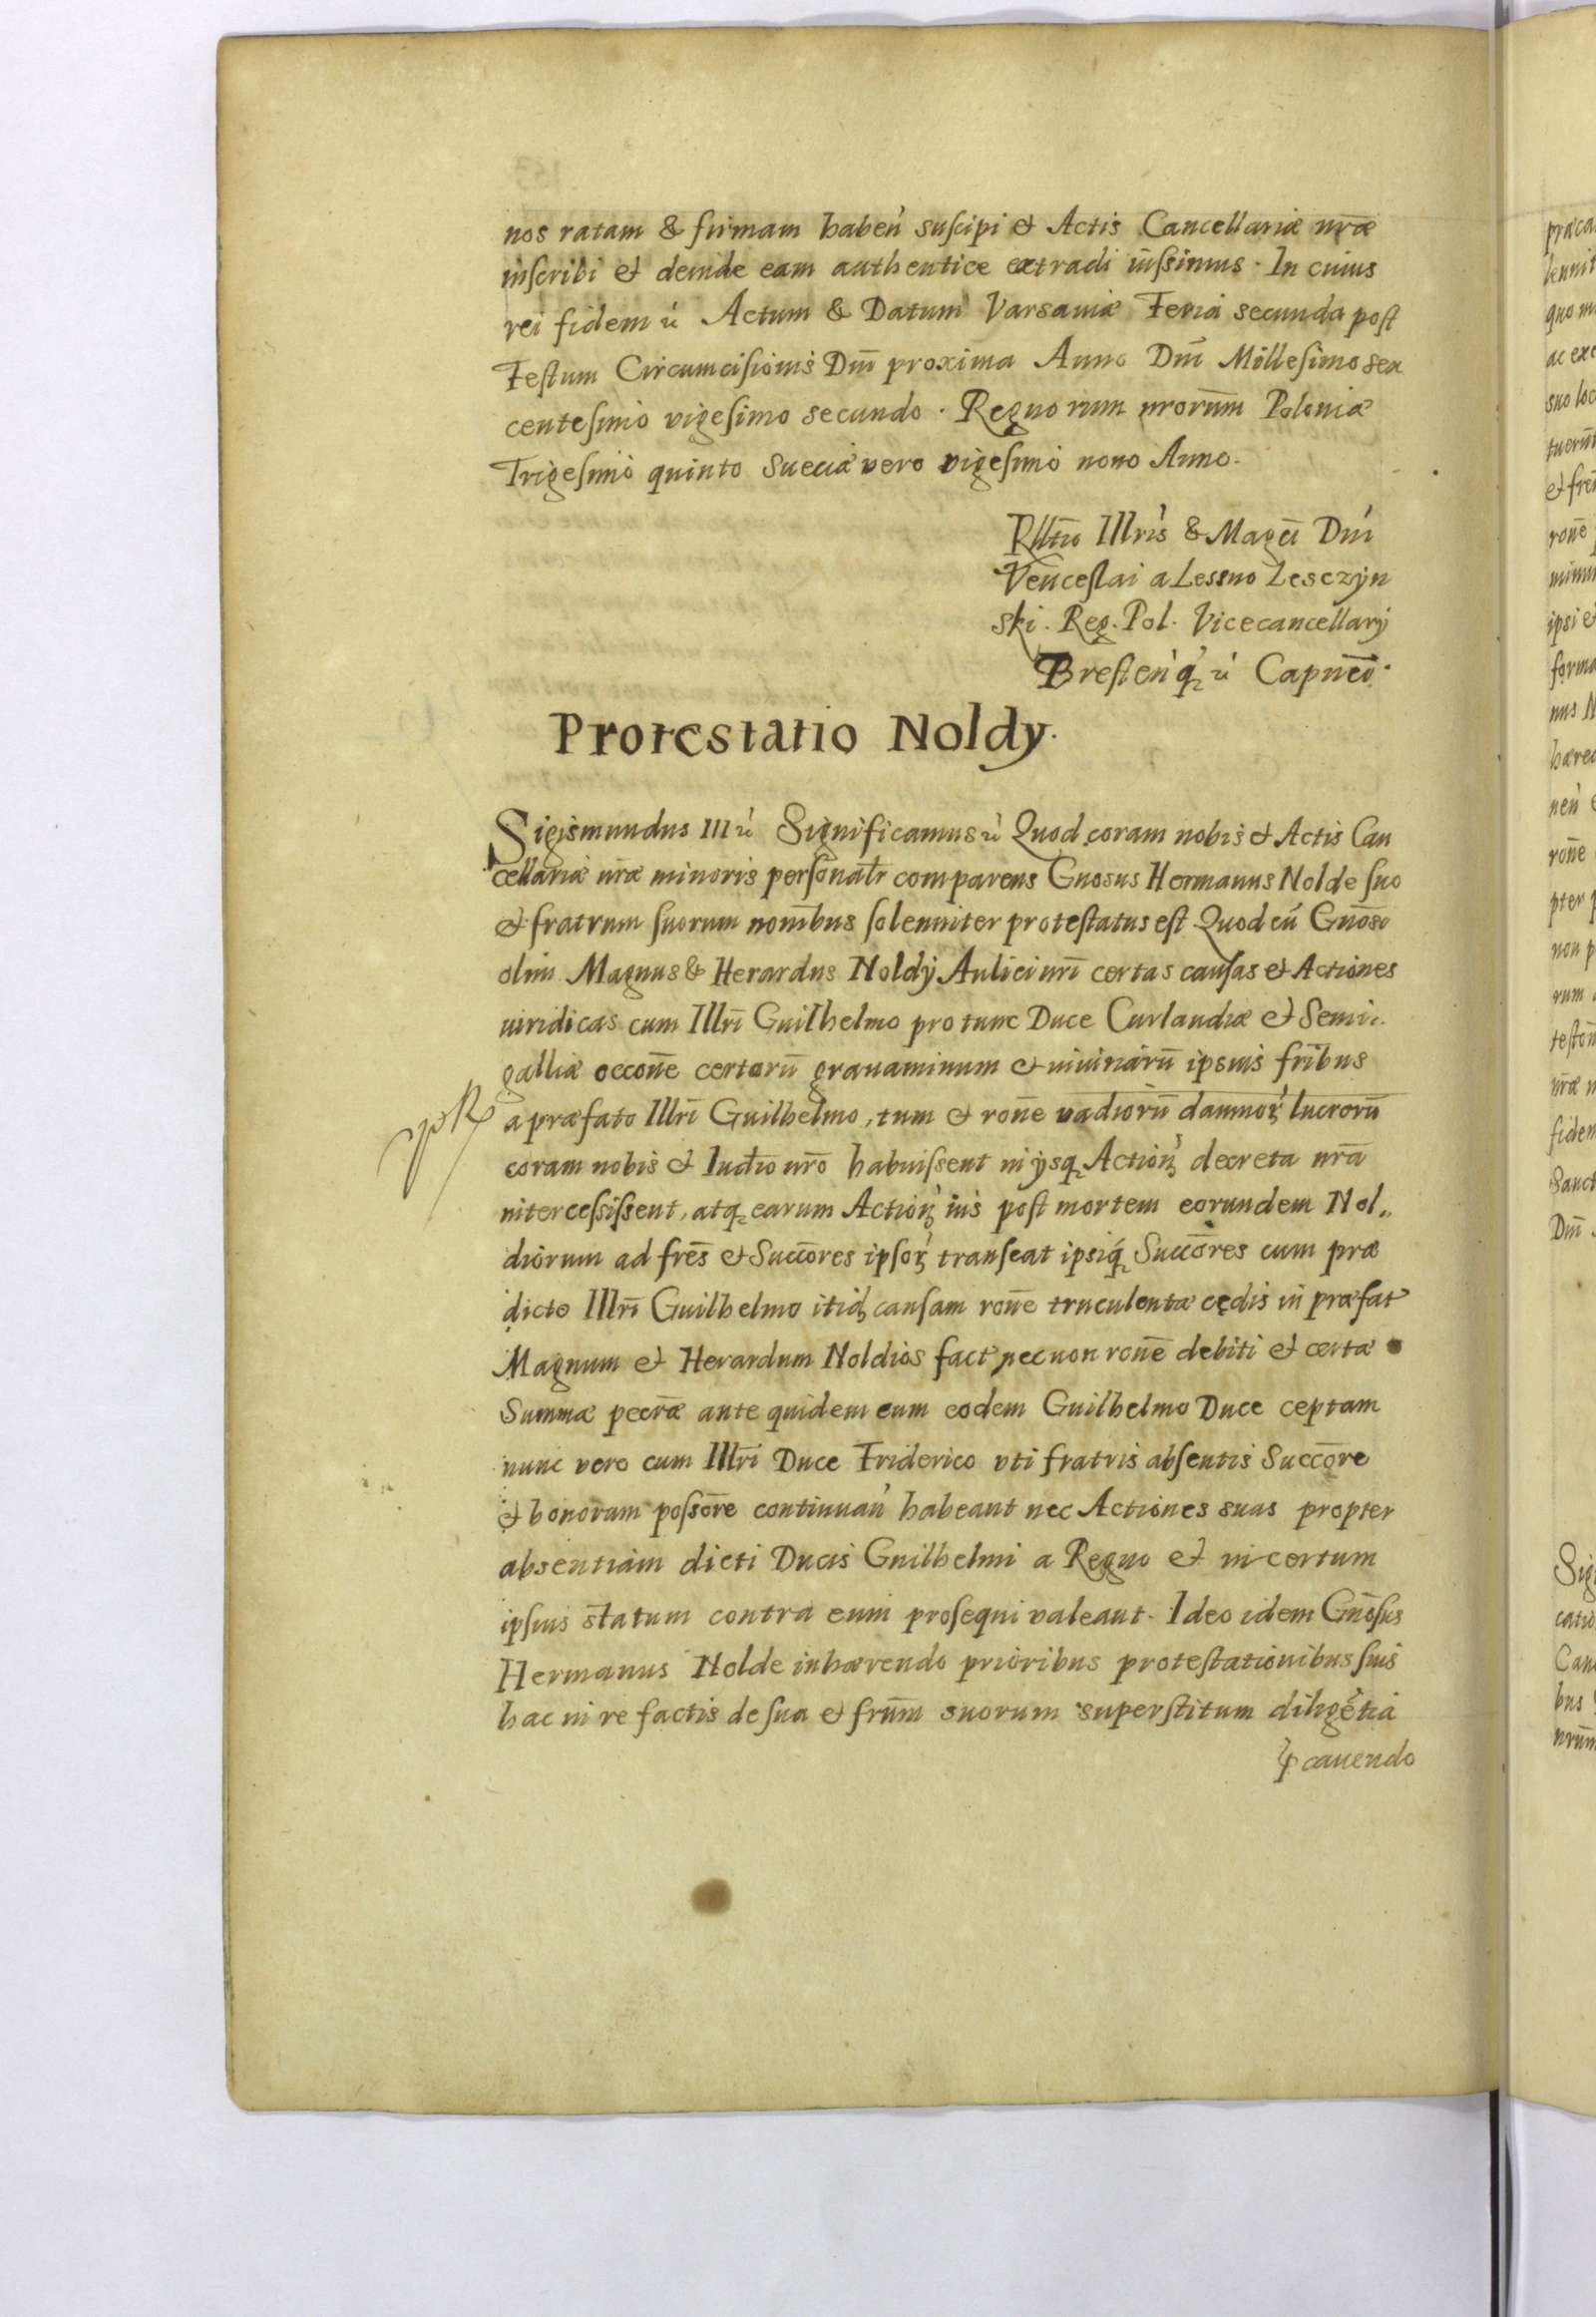 nos ratam & firmam haben̄ suscipi et Actis Cancellariæ nr̄æ
inscribi et deinde eam authentice extradi iussimus. In cuius
rei fidem ꝛc Actum & Datum Varsauiæ Feria secunda post
Festum Circumcisionis Dnī proxima Anno Dnī Millesimo sex
centesimo vigesimo secundo. Regnorum nrorum̄ Poloniæ
Trigesimo quinto Sueciæ vero vigesimo nono Anno.
Rlltīo Illris & Magcī Dnī
Venceslai a Lessno Lesczyn
ski. Reg. Pol. Vicecancellarij
Bresten̄q ꝛc Capnēo.
Protestatio Noldy.
Sigismundus III ꝛc Significamus ꝛc Quod coram nobis et Actis Can
cellariæ nr̄æ minoris personalr̄ comparens Gnosus Hermanus Nolde suo
et fratrum suorum nomībus solenniter protestatus est Quod cū Gnōso
olim Magnus & Herardus Noldÿ Aulici nrī certas causas et Actiones
iuridicas cum Illrī Guilhelmo pro tunc Duce Curlandiæ et Semi
galliæ occōne certorū grauaminum et iniuriārū ipsius frībus
a præfato Illrī Guilhelmo, tum et rōne vadiorū damnoꝝ lucrorū
coram nobis et Iudīo nrō habuissent in ijsqꝫ Actionꝫ decreta nrā
intercessissent, atqꝫ earum Actionꝫ ius post mortem eorundem Nol„
diorum ad frēs et Succōres ipsoꝝ transeat ipsiqꝫ Succōres cum præ
dicto Illrī Guilhelmo itidꝫ causam rōne truculentæ cędis in præfat
Magnum et Herardum Noldios fact necnon rōne debiti et certæ
Summæ pecrāe ante quidem cum eodem Guilhelmo Duce ceptam
nunc vero cum Illrī Duce Friderico vti fratris absentis Succōre
et bonorum possōre continuan̄ habeant nec Actiones suas propter
absentiam dicti Ducis Guilhelmi a Regno et incertum
ipsius statum contra eum prosequi valeant. Ideo idem Gnōsus
Hermanus Nolde inhærendo prioribus protestationibus suis
hac in re factis de sua et frūm suorum superstitum diligētia
p̄cauendo